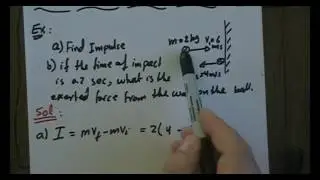 Ex:
a) Find Impulse
m=2kg V₁=6 m/s
b) if the time of impact
is 0.2 sec, what is the
exerted force from the wall on the ball.
Sol:
a) I = mVf - mVi = 2(4 -